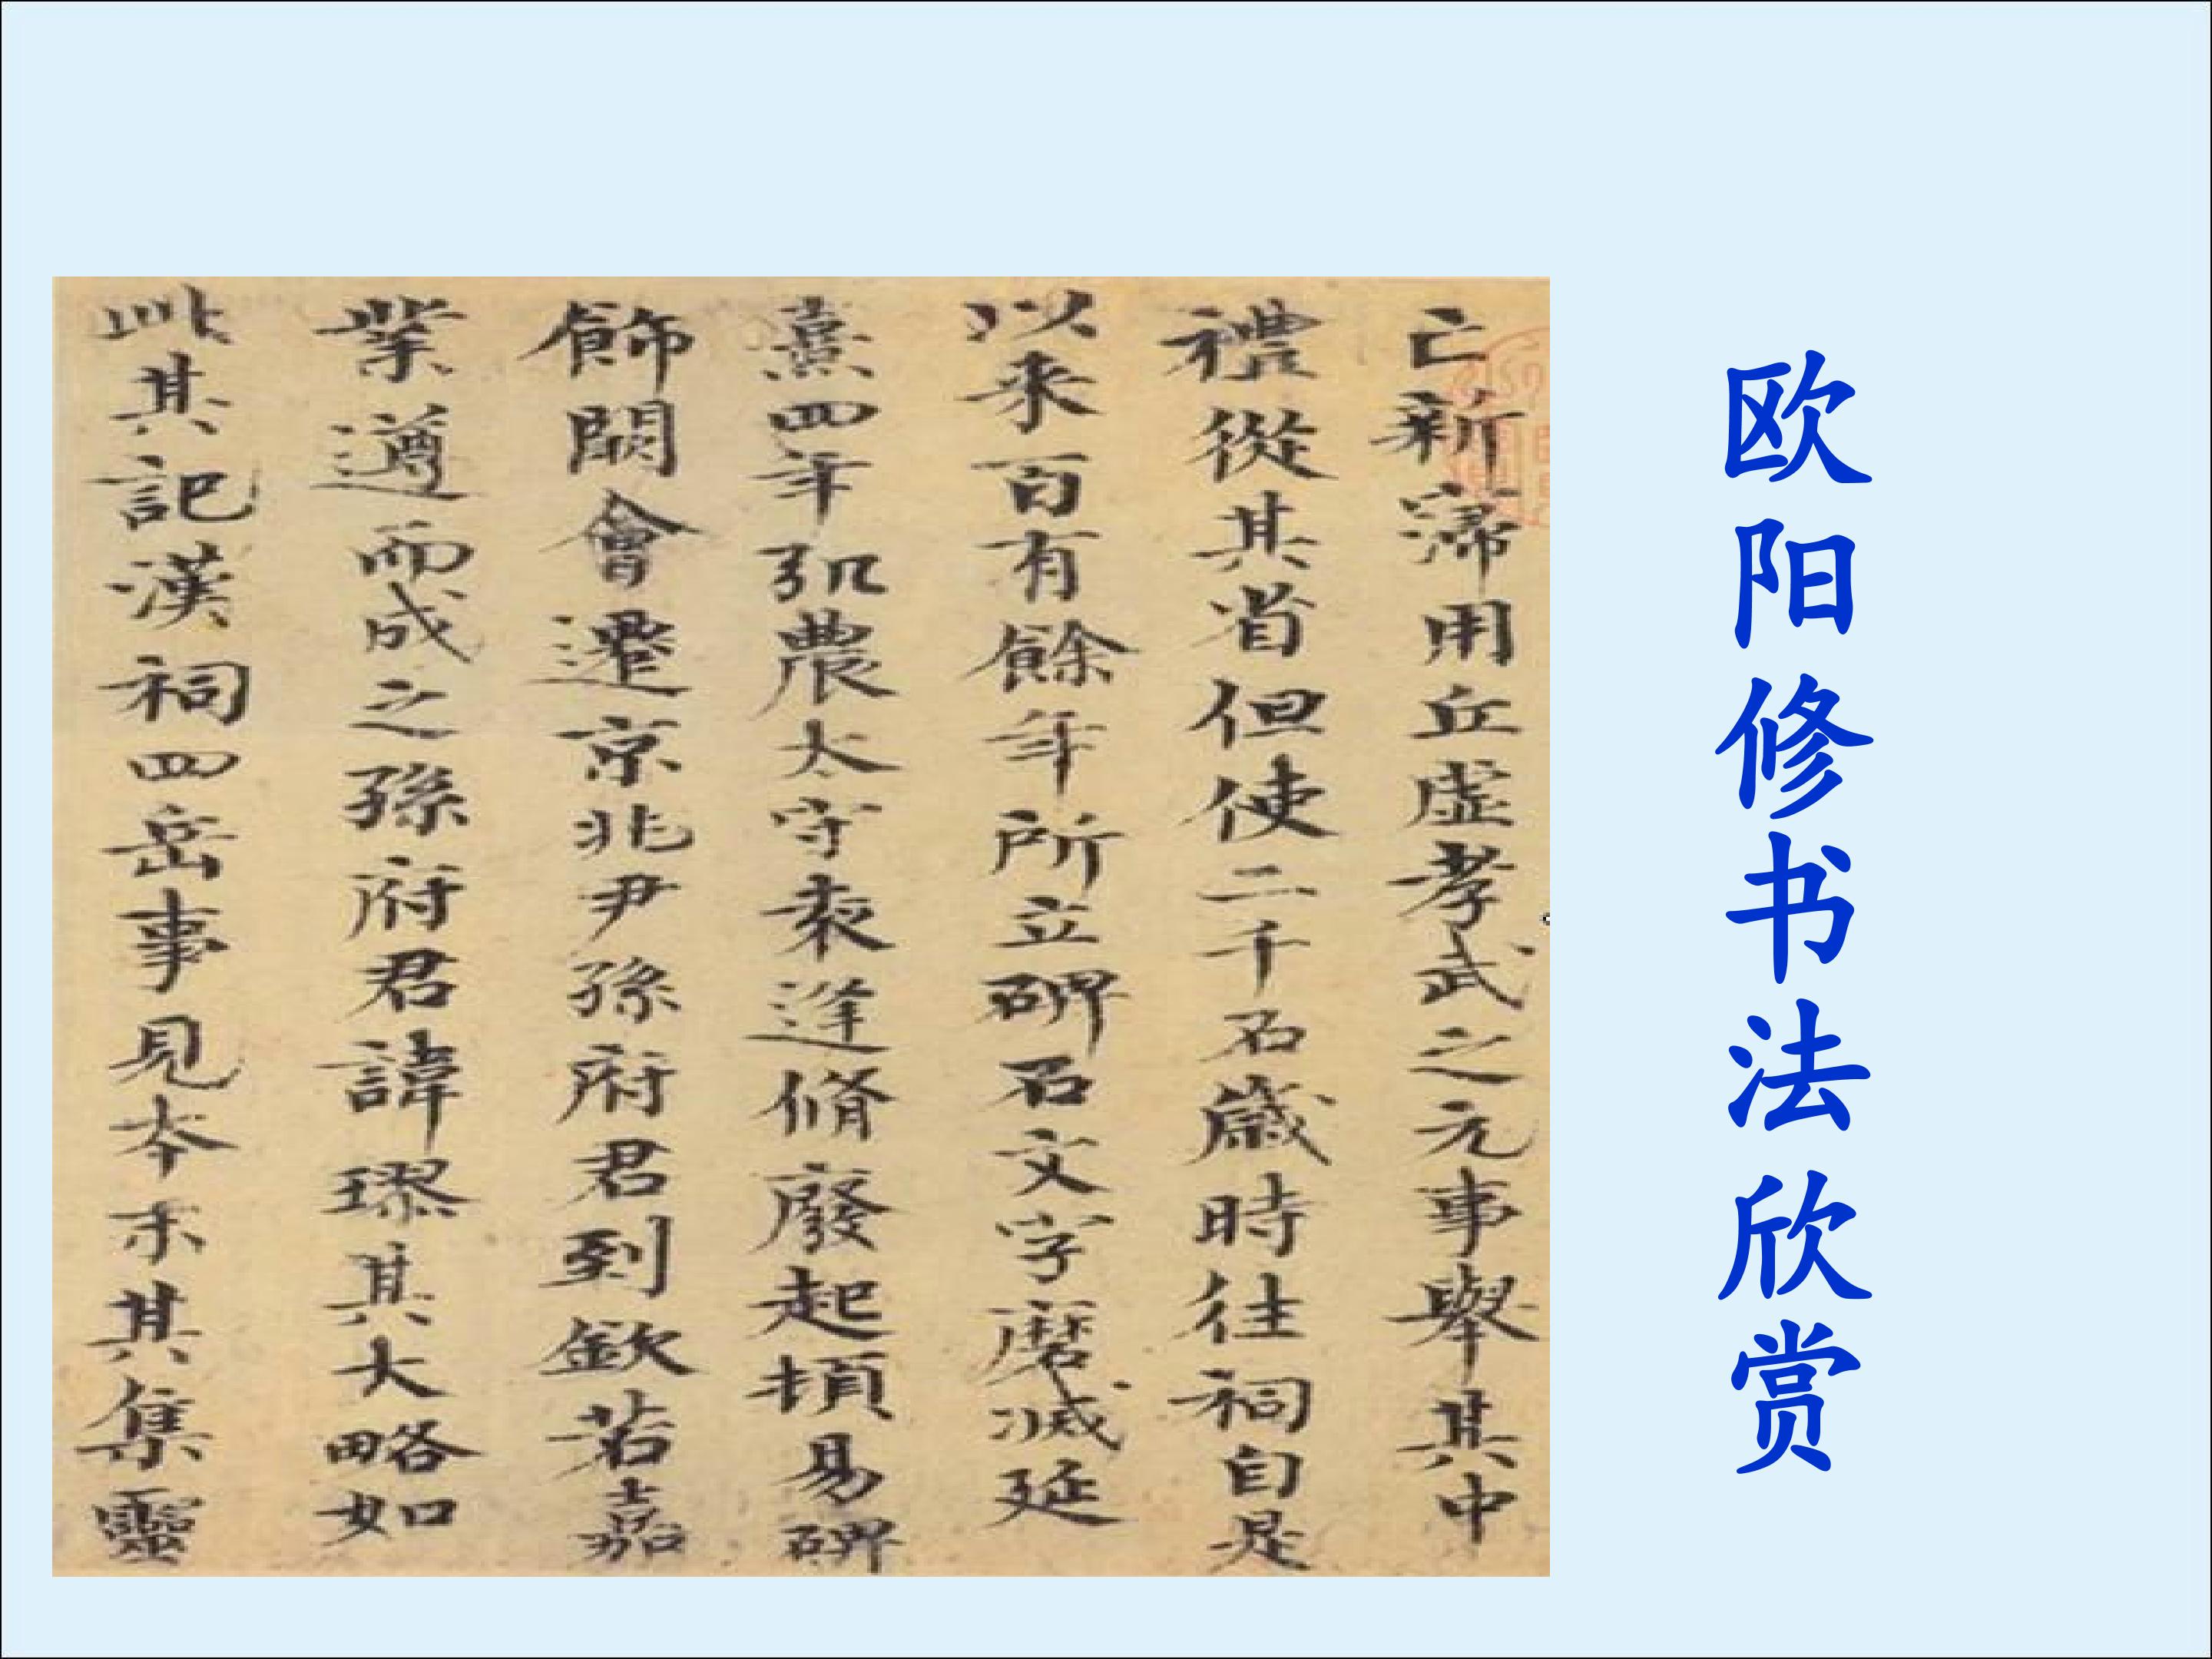 欧阳修书法欣赏
亡新寖用丘虚孝武之元事舉其中
禮從其省但使二千石歲時往祠自是
以来百有餘年所立碑石文字磨滅延
熹四年弘農太守袁逢脩廢起頓易碑
飾闕會遷京兆尹孫府君到欽若嘉
業遵而成之孫府君諱璆其大略如
此其記漢祠四岳事見本末其集靈